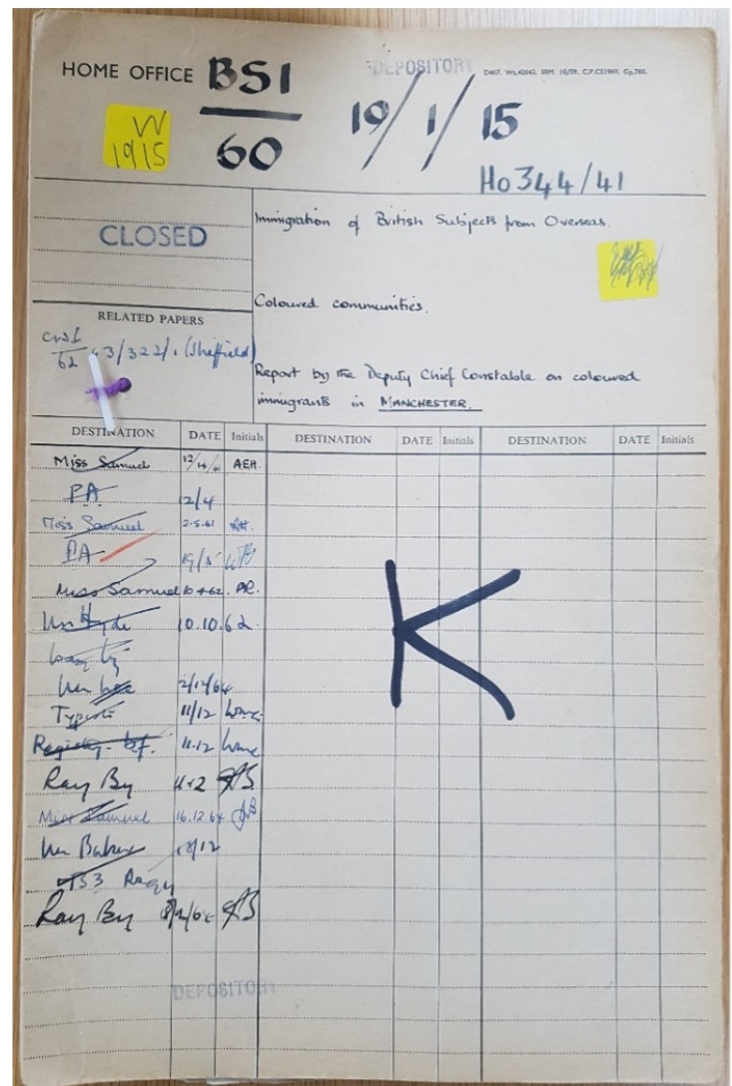 HOME OFFICE BSI
60
DEPOSITORY
D467. Wt.42042. 50M. 10/59. C.P.C51969. Gp.788.
W
1915
19/1/15
Ho 344/41
CLOSED
Immigration of British Subjects from Overseas.
Coloured communities.
RELATED PAPERS
62 63/322/1 (Sheffield)
Report by the Deputy Chief Constable on coloured
immigrants in MANCHESTER.
DESTINATION DATE Initials DESTINATION DATE Initials DESTINATION DATE Initials
Miss Samuel 12/4/61 AEH.
PA 12/4
Miss Samuel 2-5-61 AH.
PA 19/5
Miss Samuel 10.4.62. PR.
Mr Hyde 10.10.62.
2/12/64
Typists 11/12
Registry. bf. 11.12
Ray By 11.12
Miss Samuel 16.12.64
Mr Baker 18/12
Ray By
K
DEPOSITORY